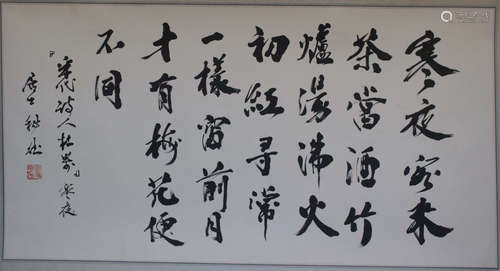 寒夜客来
茶當酒竹
爐湯沸火
初紅尋常
一樣窗前月
才有梅花便
不同
宋代詩人杜耒寒夜